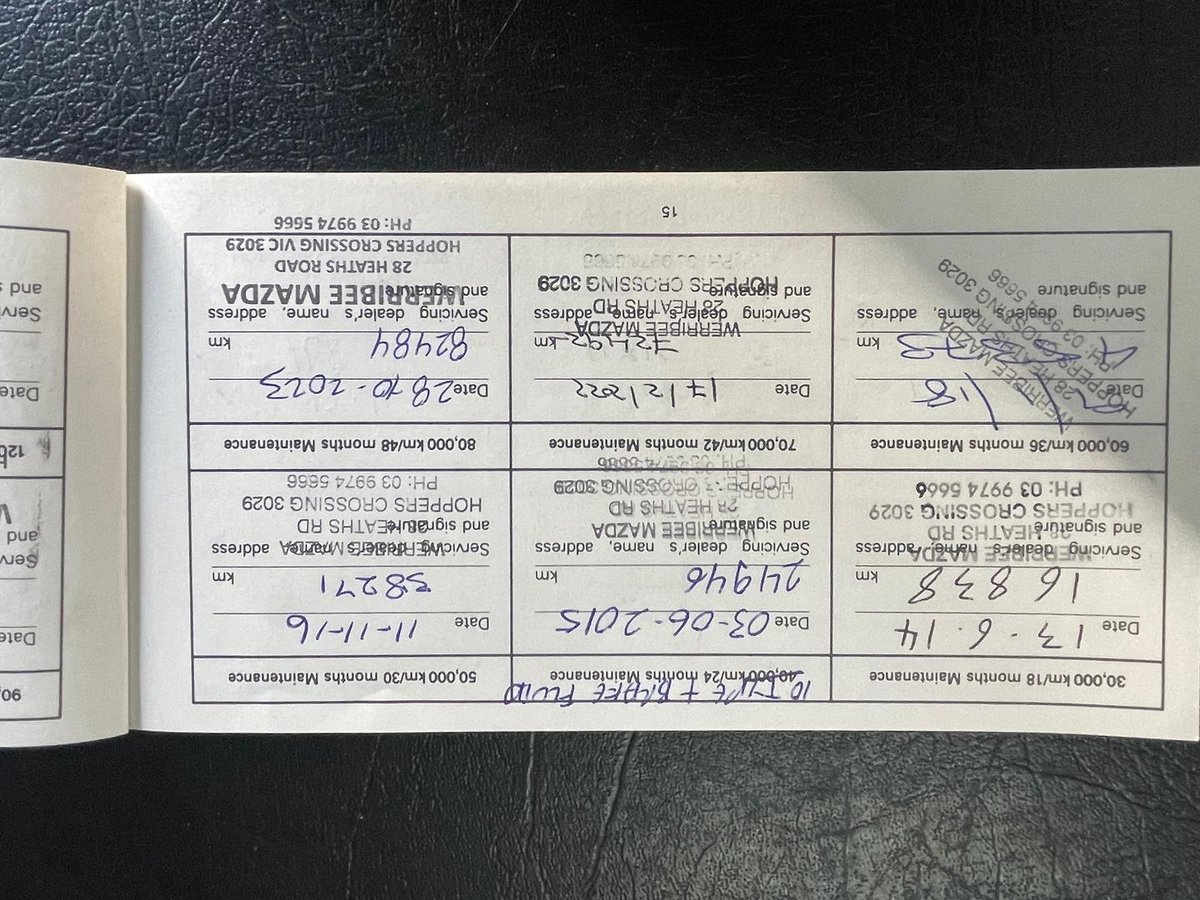 30,000 km/18 months Maintenance
Date 13.6.14
16838 km
Servicing dealer's name, address
and signature
WERRIBEE MAZDA
28 HEATHS RD
HOPPERS CROSSING 3029
PH: 03 9974 5666
40,000 km/24 months Maintenance
10 + FLUID
Date 03-06-2015
24946 km
Servicing dealer's name, address
and signature
WERRIBEE MAZDA
28 HEATHS RD
HOPPERS CROSSING 3029
PH: 03 9974 5666
50,000 km/30 months Maintenance
Date 11-11-16
38271 km
Servicing dealer's name, address
and signature
WERRIBEE MAZDA
28 HEATHS RD
HOPPERS CROSSING 3029
PH: 03 9974 5666
60,000 km/36 months Maintenance
Date /18
km
Servicing dealer's name, address
and signature
WERRIBEE MAZDA
28 HEATHS RD
HOPPERS CROSSING 3029
PH: 03 9974 5666
70,000 km/42 months Maintenance
Date 17/2/2022
72492 km
Servicing dealer's name, address
and signature
WERRIBEE MAZDA
28 HEATHS RD
HOPPERS CROSSING 3029
PH: 03 9974 5666
80,000 km/48 months Maintenance
Date 28-10-2023
82484 km
Servicing dealer's name, address
and signature
WERRIBEE MAZDA
28 HEATHS ROAD
HOPPERS CROSSING VIC 3029
PH: 03 9974 5666
15
90,
Date
Serv
and
W
120
Date
Servi
and s